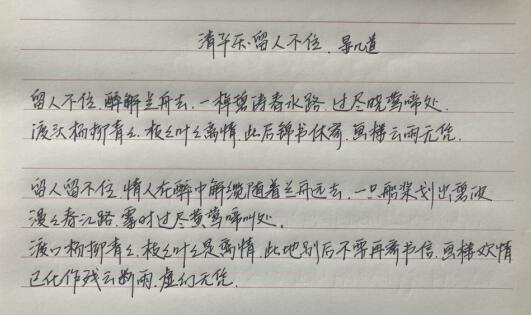 清平乐·留人不住. 晏几道
留人不住.醉解兰舟去.一棹碧涛春水路.过尽晓莺啼处.
渡头杨柳青々.枝々叶々离情.此后锦书休寄.画楼云雨无凭.
留人留不住.情人在醉中解缆随着兰舟远去.一只船桨划出碧波
漫々春江路.霎时过尽黄莺啼叫处.
渡口杨柳青々.枝々叶々是离情.此地别后不要再寄书信.画楼欢情
已化作残云断雨.虚幻无凭.